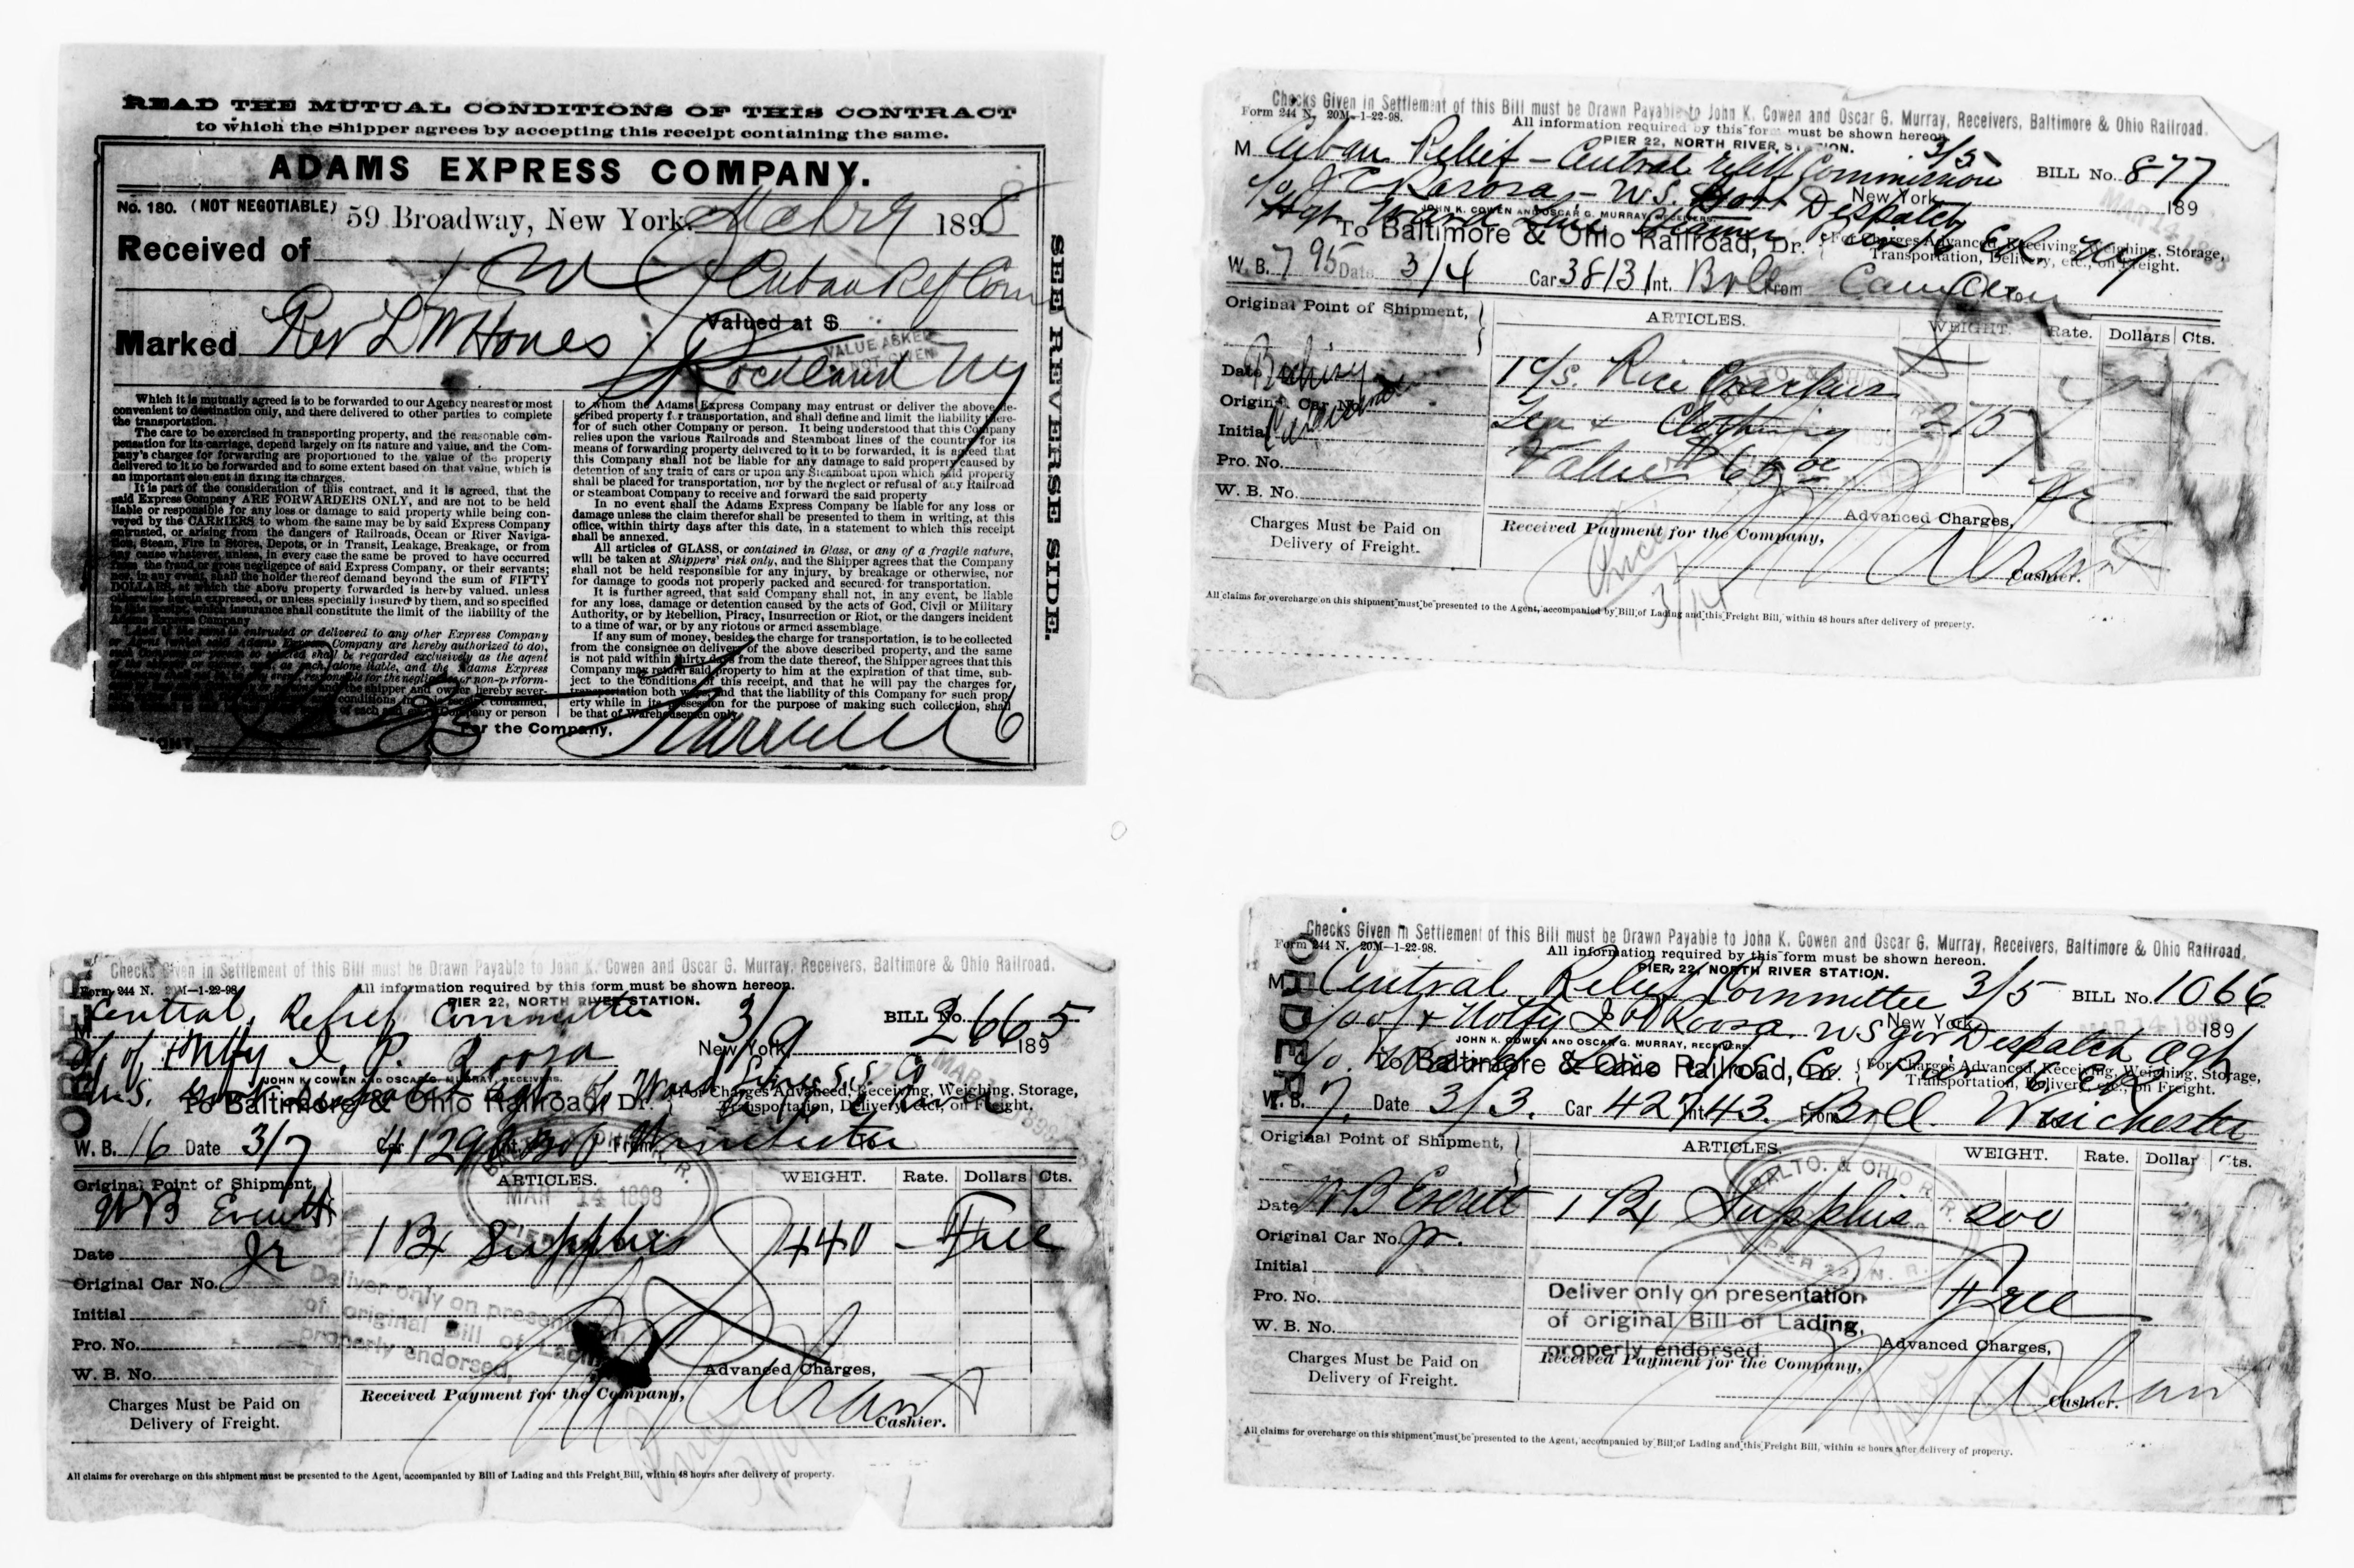 READ THE MUTUAL CONDITIONS OF THIS CONTRACT
to which the Shipper agrees by accepting this receipt containing the same.
ADAMS EXPRESS COMPANY.
No. 180. (NOT NEGOTIABLE) 59 Broadway, New York. 1898
Received of
Cuban Ref Com
Valued at $
Marked Rev L W Hones
VALUE ASKED
NOT GIVEN
Rockland
SEE REVERSE SIDE.
Which it is mutually agreed is to be forwarded to our Agency nearest or most
convenient to destination only, and there delivered to other parties to complete
the transportation.
The care to be exercised in transporting property, and the reasonable com-
pensation for its carriage, depend largely on its nature and value, and the Com-
pany's charges for forwarding are proportioned to the value of the property
delivered to it to be forwarded and to some extent based on that value, which is
an important element in fixing its charges.
It is part of the consideration of this contract, and it is agreed, that the
said Express Company ARE FORWARDERS ONLY, and are not to be held
liable or responsible for any loss or damage to said property while being con-
veyed by the CARRIERS to whom the same may be by said Express Company
entrusted, or arising from the dangers of Railroads, Ocean or River Naviga-
tion, Steam, Fire in Stores, Depots, or in Transit, Leakage, Breakage, or from
any cause whatever, unless, in every case the same be proved to have occurred
from the fraud or gross negligence of said Express Company, or their servants;
nor, in any event, shall the holder thereof demand beyond the sum of FIFTY
DOLLARS, at which the above property forwarded is hereby valued, unless
otherwise herein expressed, or unless specially insured by them, and so specified
in this receipt, which insurance shall constitute the limit of the liability of the
Adams Express Company
entrusted or delivered to any other Express Company
Company are hereby authorized to do),
shall be regarded exclusively as the agent
alone liable, and the Adams Express
responsible for the negligence or non-perform-
the shipper and owner hereby sever-
conditions
Company or person
to whom the Adams Express Company may entrust or deliver the above de-
scribed property for transportation, and shall define and limit the liability there-
for of such other Company or person. It being understood that this Company
relies upon the various Railroads and Steamboat lines of the country for its
means of forwarding property delivered to it to be forwarded, it is agreed that
this Company shall not be liable for any damage to said property caused by
detention of any train of cars or upon any Steamboat upon which said property
shall be placed for transportation, nor by the neglect or refusal of any Railroad
or Steamboat Company to receive and forward the said property
In no event shall the Adams Express Company be liable for any loss or
damage unless the claim therefor shall be presented to them in writing, at this
office, within thirty days after this date, in a statement to which this receipt
shall be annexed.
All articles of GLASS, or contained in Glass, or any of a fragile nature,
will be taken at Shippers' risk only, and the Shipper agrees that the Company
shall not be held responsible for any injury, by breakage or otherwise, nor
for damage to goods not properly packed and secured for transportation.
It is further agreed, that said Company shall not, in any event, be liable
for any loss, damage or detention caused by the acts of God, Civil or Military
Authority, or by Rebellion, Piracy, Insurrection or Riot, or the dangers incident
to a time of war, or by any riotous or armed assemblage.
If any sum of money, besides the charge for transportation, is to be collected
from the consignee on delivery of the above described property, and the same
is not paid within thirty days from the date thereof, the Shipper agrees that this
Company may return said property to him at the expiration of that time, sub-
ject to the conditions of this receipt, and that he will pay the charges for
transportation both ways, and that the liability of this Company for such prop-
erty while in its possession for the purpose of making such collection, shall
be that of Warehousemen only.
For the Company,
Checks Given in Settlement of this Bill must be Drawn Payable to John K. Cowen and Oscar G. Murray, Receivers, Baltimore & Ohio Railroad.
Form 244 N. 20M-1-22-98.
All information required by this form must be shown hereon.
PIER 22, NORTH RIVER, STATION.
3/5
M Cuban Relief - Central Relief Commission BILL No. 877
New York, 189
MAR 14 1898
W.S. Govt Despatch
JOHN K. COWEN AND OSCAR G. MURRAY, RECEIVERS.
To Baltimore & Ohio Railroad, Dr. For Charges Advanced, Receiving, Weighing, Storage,
Transportation, Delivery, etc., on Freight.
W. B. 795 Date 3/4 Car 3813 Int. From Cameron
Original Point of Shipment, ARTICLES. WEIGHT. Rate. Dollars Cts.
Date
1 c/s. Rice
Original Car No. Cameron
Initial
& Clothing 275
Pro. No.
Value $60
W. B. No.
Advanced Charges,
Charges Must be Paid on
Delivery of Freight.
Received Payment for the Company,
3/14
Cashier.
All claims for overcharge on this shipment must be presented to the Agent, accompanied by Bill of Lading and this Freight Bill, within 48 hours after delivery of property.
ORDER
Checks Given in Settlement of this Bill must be Drawn Payable to John K. Cowen and Oscar G. Murray, Receivers, Baltimore & Ohio Railroad.
Form 244 N. 20M-1-22-98
All information required by this form must be shown hereon.
PIER 22, NORTH RIVER STATION.
M Central Relief Committee 3/9 BILL No. 2665
New York, 189
o/ of & Notfy I. P. Roosa
JOHN K. COWEN AND OSCAR G. MURRAY, RECEIVERS.
U.S. Govt Despatch Agt of Ward Line S.S. Co
To Baltimore & Ohio Railroad, Dr. For Charges Advanced, Receiving, Weighing, Storage,
Transportation, Delivery, etc., on Freight.
W. B. 16 Date 3/7 Car From Winchester
Original Point of Shipment, ARTICLES. WEIGHT. Rate. Dollars Cts.
MAR 14 1898
W B Everett
Jr
Date
1 Bx Supplies 440 - Free
Original Car No.
Initial
Pro. No.
Deliver only on presentation
of original Bill of Lading,
properly endorsed.
W. B. No.
Advanced Charges,
Charges Must be Paid on
Delivery of Freight.
Received Payment for the Company,
Cashier.
All claims for overcharge on this shipment must be presented to the Agent, accompanied by Bill of Lading and this Freight Bill, within 48 hours after delivery of property.
ORDER
Checks Given in Settlement of this Bill must be Drawn Payable to John K. Cowen and Oscar G. Murray, Receivers, Baltimore & Ohio Railroad.
Form 244 N. 20M-1-22-98.
All information required by this form must be shown hereon.
PIER, 22, NORTH RIVER STATION.
M Central Relief Committee 3/5 BILL No. 1066
New York, 189
MAR 14 1898
o/ of & Notfy I P Roosa W S Gov Despatch Agt
JOHN K. COWEN AND OSCAR G. MURRAY, RECEIVERS.
To Baltimore & Ohio Railroad, Dr. For Charges Advanced, Receiving, Weighing, Storage,
Transportation, Delivery, etc., on Freight.
W. B. 7. Date 3/3. Car 42743. Int. From Winchester
Original Point of Shipment, ARTICLES. WEIGHT. Rate. Dollar Cts.
BALTO. & OHIO R. R.
PIER 22, N. R.
Date W B Everett 1 Bx Supplies 200
Original Car No. Jr.
Initial
Free
Pro. No.
Deliver only on presentation
of original Bill of Lading,
properly endorsed.
W. B. No.
Advanced Charges,
Charges Must be Paid on
Delivery of Freight.
Received Payment for the Company,
Cashier.
All claims for overcharge on this shipment must be presented to the Agent, accompanied by Bill of Lading and this Freight Bill, within 48 hours after delivery of property.